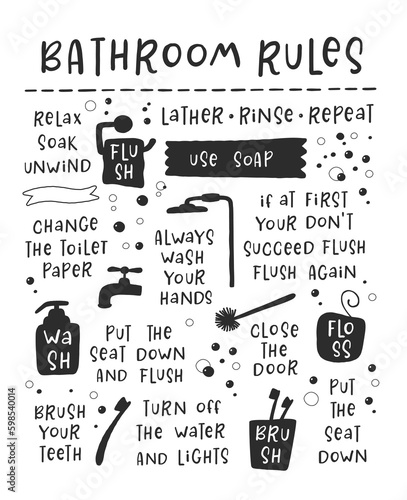 BATHROOM RULES
RELAX
SOAK
UNWIND
FLU
SH
LATHER • RINSE • REPEAT
USE SOAP
CHANGE
THE TOILET
PAPER
ALWAYS
WASH
YOUR
HANDS
if AT FIRST
YOUR DON'T
SUCCEED FLUSH
FLUSH AGAIN
WA
SH
PUT THE
SEAT DOWN
AND FLUSH
CLOSE
THE
DOOR
FLO
SS
BRUSH
YOUR
TEETH
TURN Off
THE WATER
AND LIGHTS
BRU
SH
PUT
THE
SEAT
DOWN
Adobe Stock | #598540014